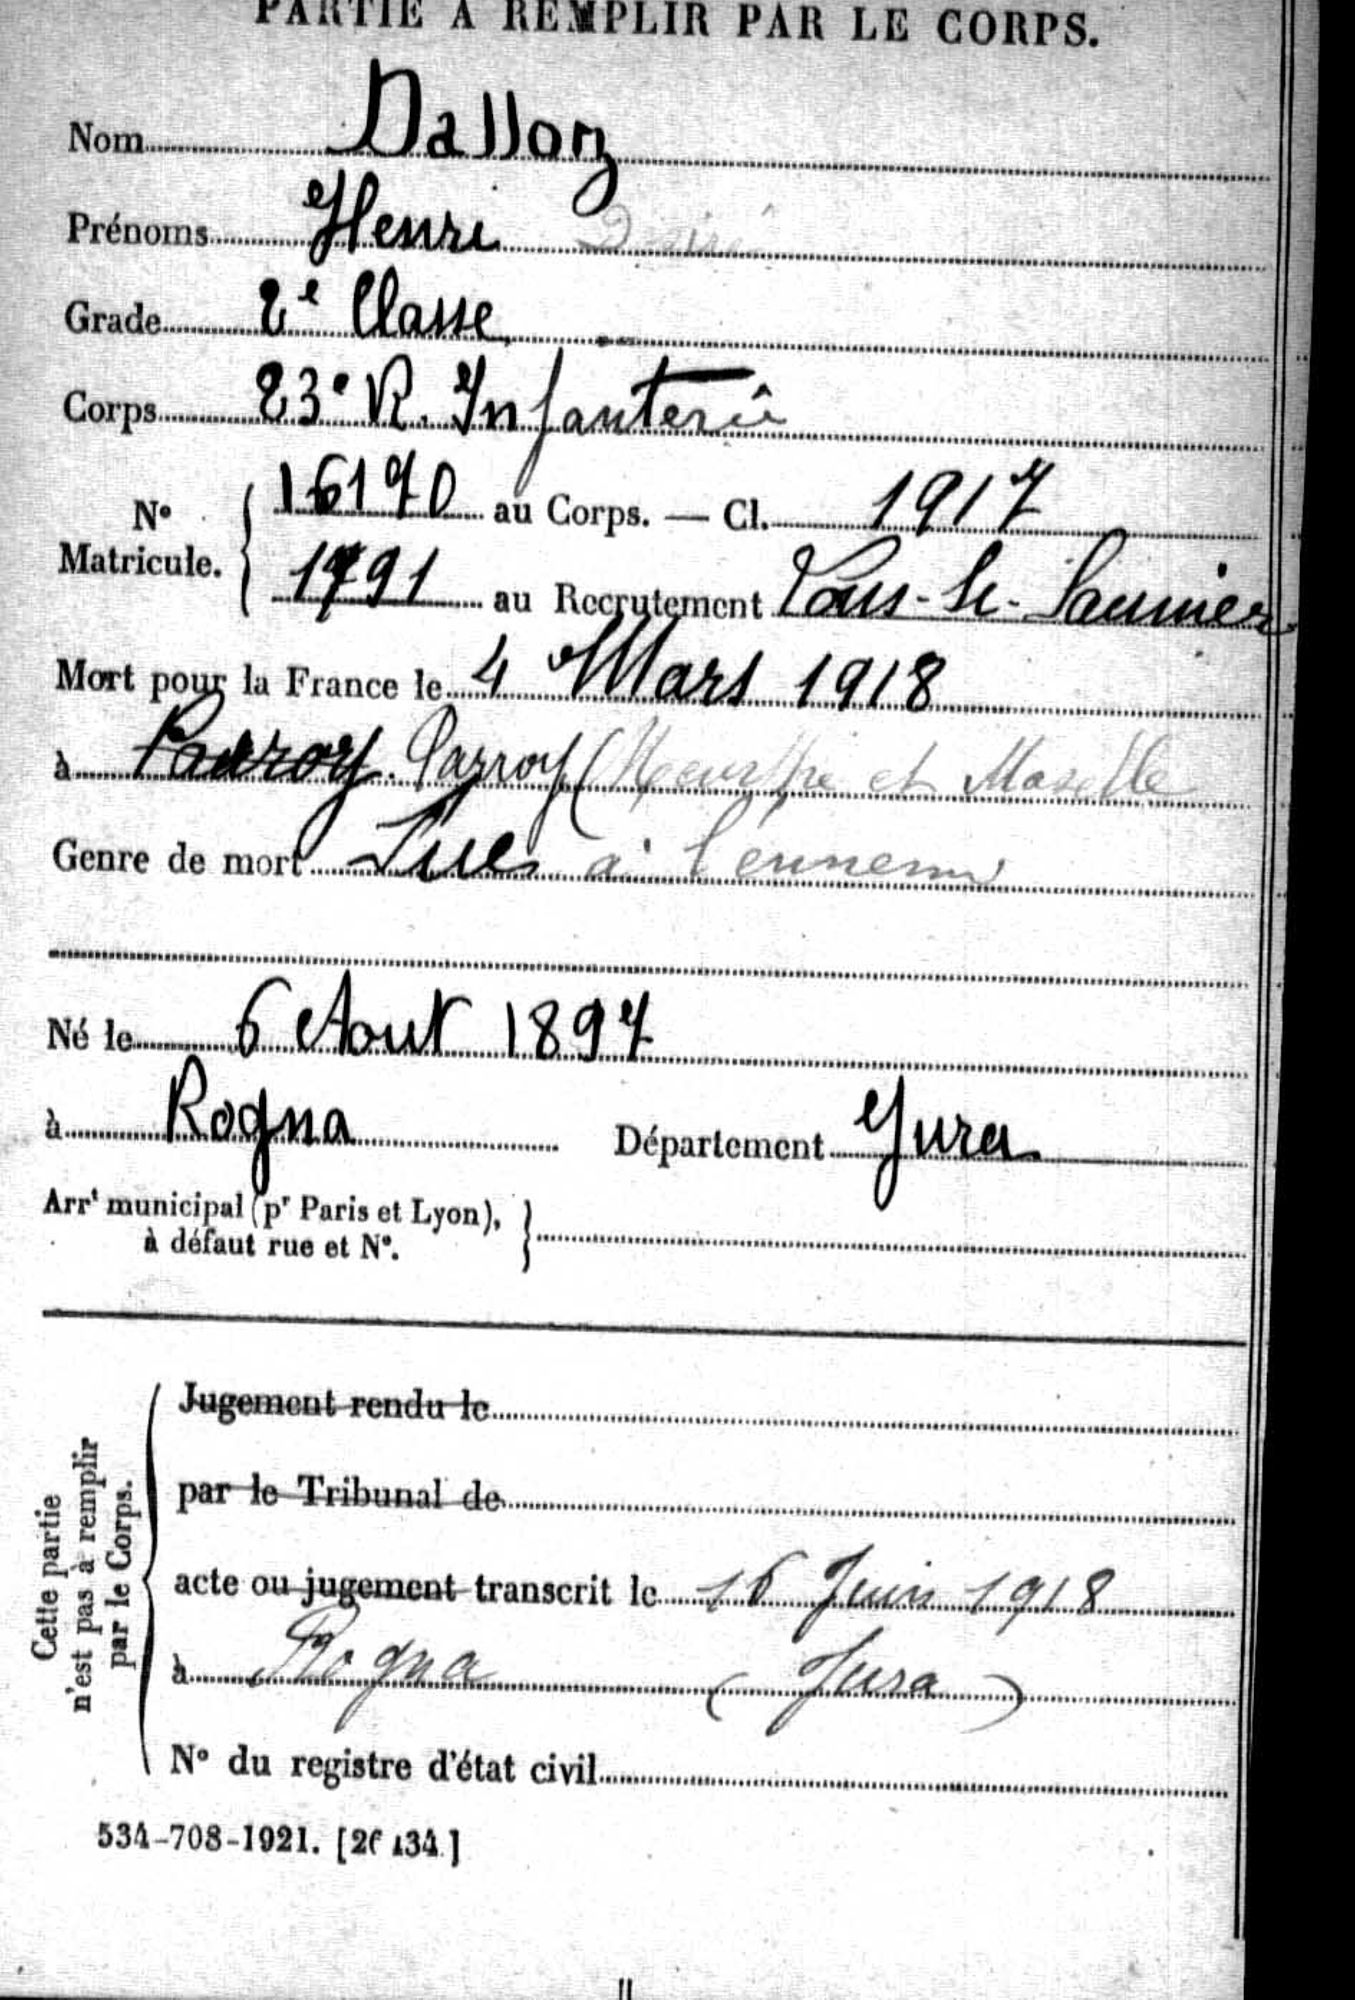 PARTIE A REMPLIR PAR LE CORPS.
Nom Dalloz
Prénoms Henri Désiré
Grade 2e Classe
Corps 23e R. Infanterie
No Matricule. { 16170 au Corps. — Cl. 1917
1791 au Recrutement Lons-le-Saunier
Mort pour la France le 4 Mars 1918
à Parroy (Meurthe et Moselle
Genre de mort Tué à l'ennemi
Né le 6 Aout 1897
à Rogna Département Jura
Arrt municipal (pr Paris et Lyon), }
à défaut rue et No.
Cette partie
n'est pas à remplir
par le Corps.
Jugement rendu le
par le Tribunal de
acte ou jugement transcrit le 16 Juin 1918
à Rogna (Jura)
No du registre d'état civil
534-708-1921. [26434.]